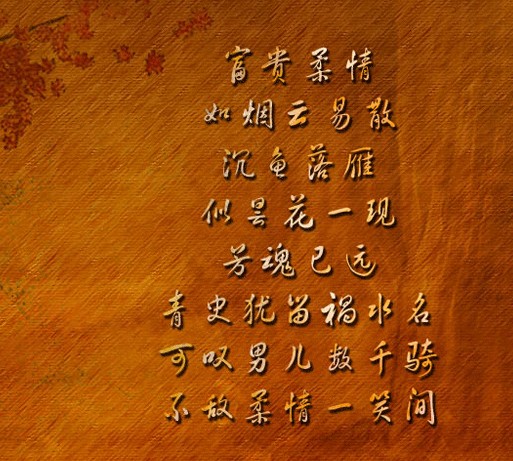 富贵柔情
如烟云易散
沉鱼落雁
似昙花一现
芳魂已远
青史犹留祸水名
可叹男儿数千骑
不敌柔情一笑间